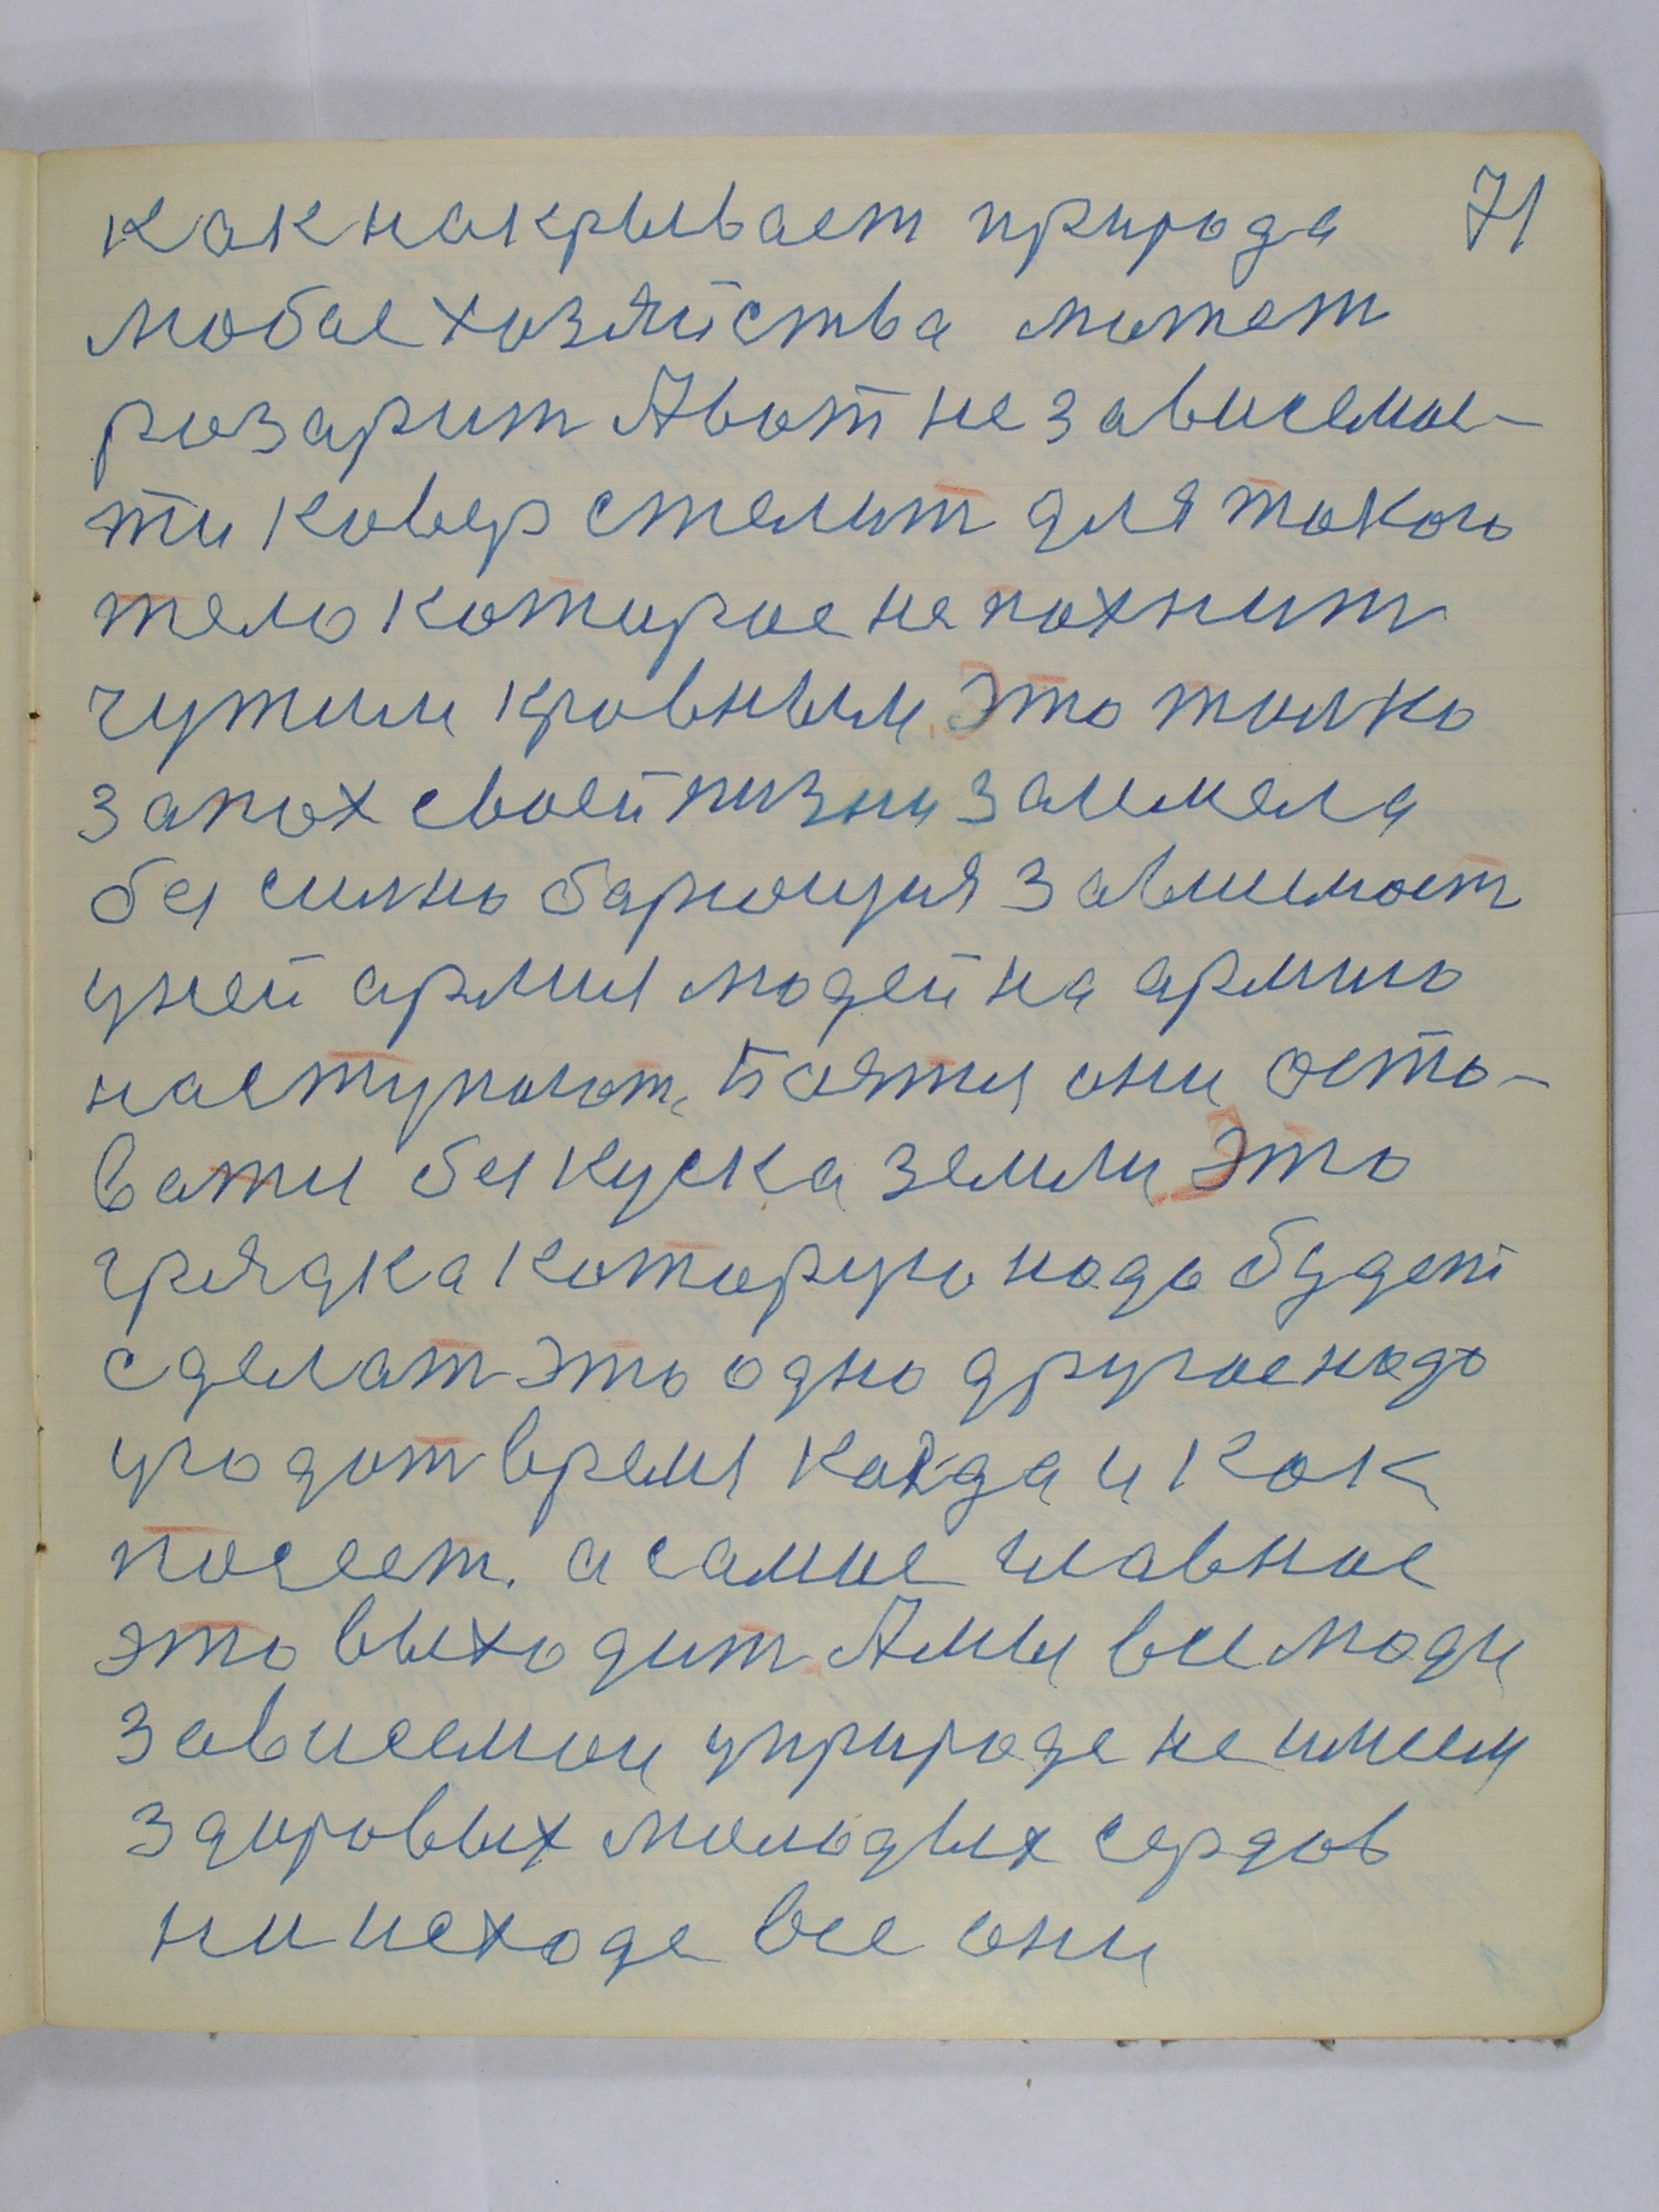 как накрывает природа 71
любое хозяйства может
розарит А вот не зависемос-
ти ковер стелит для такого
тело которое не пахнит
чужим кровным. Это только
запох своей жизни заимела
бес силно борющия зависимост
у ней армия людей на армию
наступают. Боятся они осто-
ватся без куска земли. Это
грядка которую надо будет
сделат это одно другое надо
угодот время когда и как
посеет. а самое главное
это выходит. А мы все люди
зависемои у природе не имеем
здоровых молодых сердов
ни исходе все они